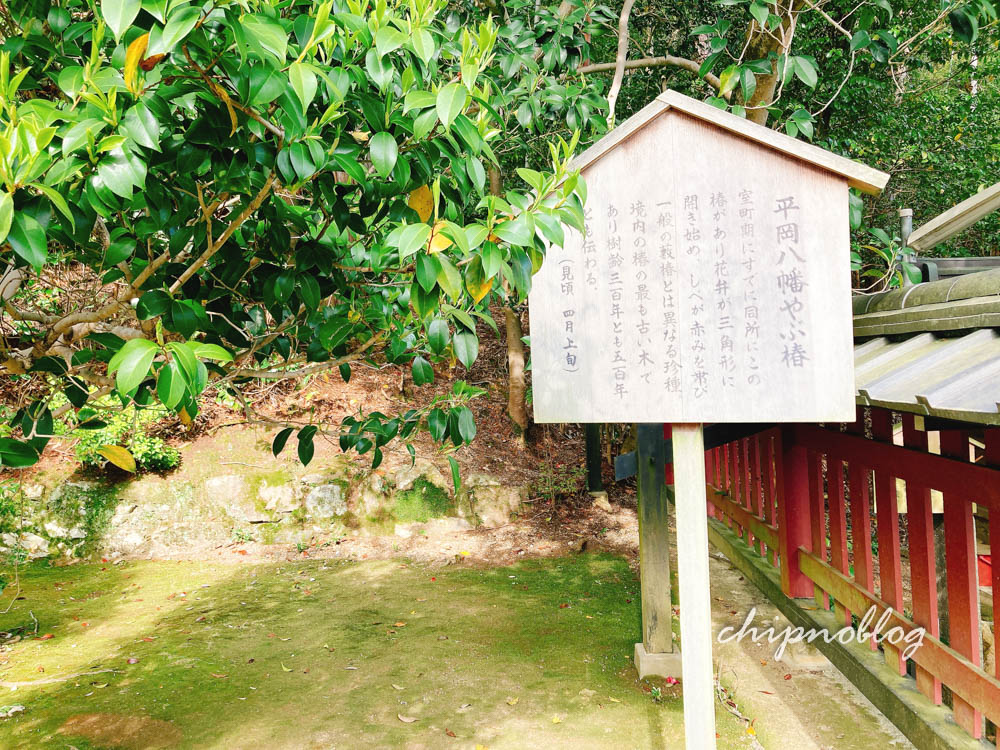 平岡八幡やぶ椿
室町期にすでに同所にこの
椿があり花弁が三角形に
開き始め、しべが赤みを帯び
一般の藪椿とは異なる珍種。
境内の椿の最も古い木で
あり樹齢三百年とも五百年
とも伝わる。
(見頃 四月上旬)
chipnoblog